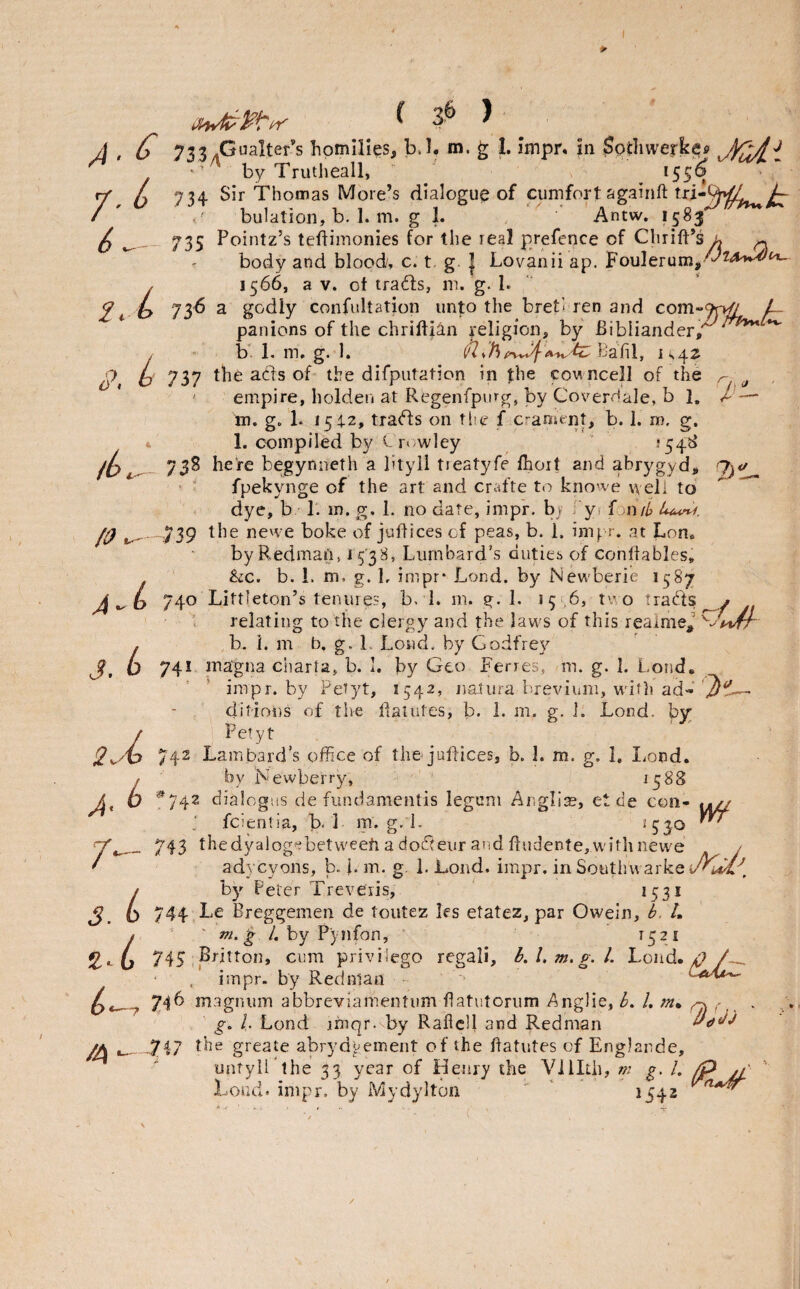 ( 36 )
4. 6 733 Gualter's homilies, b. l. m. g l. impr. in Sothwerke,
by Trutheall, 1556
7. 6 734 Sir Thomas More's dialogue of cumfort againſt tri-
bulation, b. l. m. g l. Antw. 1583
6 735 Pointz's teſtimonies for the real preſence of Chriſt's
body and blood, c. t. g. l Lovanii ap. Foulerum,
1566, a v. of tracts, m. g. l.
2. 6 736 a godly conſultation unto the bret ren and com-
panions of the chriſtian religion, by Bibliander,
b. l. m. g. l. Baſil, 1542
8. 6 737 the acts of the diſputation in the cowncell of the
empire, holden at Regenſpurg, by Coverdale, b l.
m. g. l. 1542, tracts on the ſ crament, b. l. m. g.
l. compiled by Crowley 1548
16 738 here begynneth a lityll treatyſe ſhort and abrygyd,
ſpekynge of the art and crafte to knowe well to
dye, b l. m. g. l. no date, impr. by
10 739 the newe boke of juſtices of peas, b. l. impr. at Lon.
by Redman, 1538, Lumbard's duties of conſtables,
&c. b. l. m. g. l. impr. Lond. by Newberie 1587
4. 6 740 Littleton's tenures, b. l. m. g. l. 15 6, two tracts
relating to the clergy and the laws of this realme,
b. l. m b. g. l. Lond. by Godfrey
3. 6 741 magna charta, b. l. by Geo Ferres, m. g. l. Lond.
impr. by Petyt, 1542, natura brevium, with ad-
ditions of the ſtatutes, b. l. m. g. l. Lond. by
Petyt
2. 6 742 Lambard's office of the juſtices, b. l. m. g. l. Lond.
by Newberry, 1588
4. 6 *742 dialogus de fundamentis legum Angliæ, et de con-
ſcientia, b. l m. g. l. 1530
7 743 thedyalogebetweeñ a docteur and ſtudente, with newe
adycyons, b. l. m. g. l. Lond. impr. in Southwarke
by Peter Treveris, 1531
3. 6 744 Le Breggemen de toutez les etatez, par Owein, b. l.
m. g l. by Pynſon, 1521
2. 6 745 Britton, cum privilego regali, b. l. m. g. l. Lond.
impr. by Redman
6 746 magnum abbreviamentum ſtatutorum Anglie, b. l. m.
g. l. Lond imqr. by Raſtell and Redman
14 747 the greate abrydgement of the ſtatutes of Englande,
untyll the 33 year of Henry the VIIIth, m g. l.
Lond. impr. by Mydylton 1542